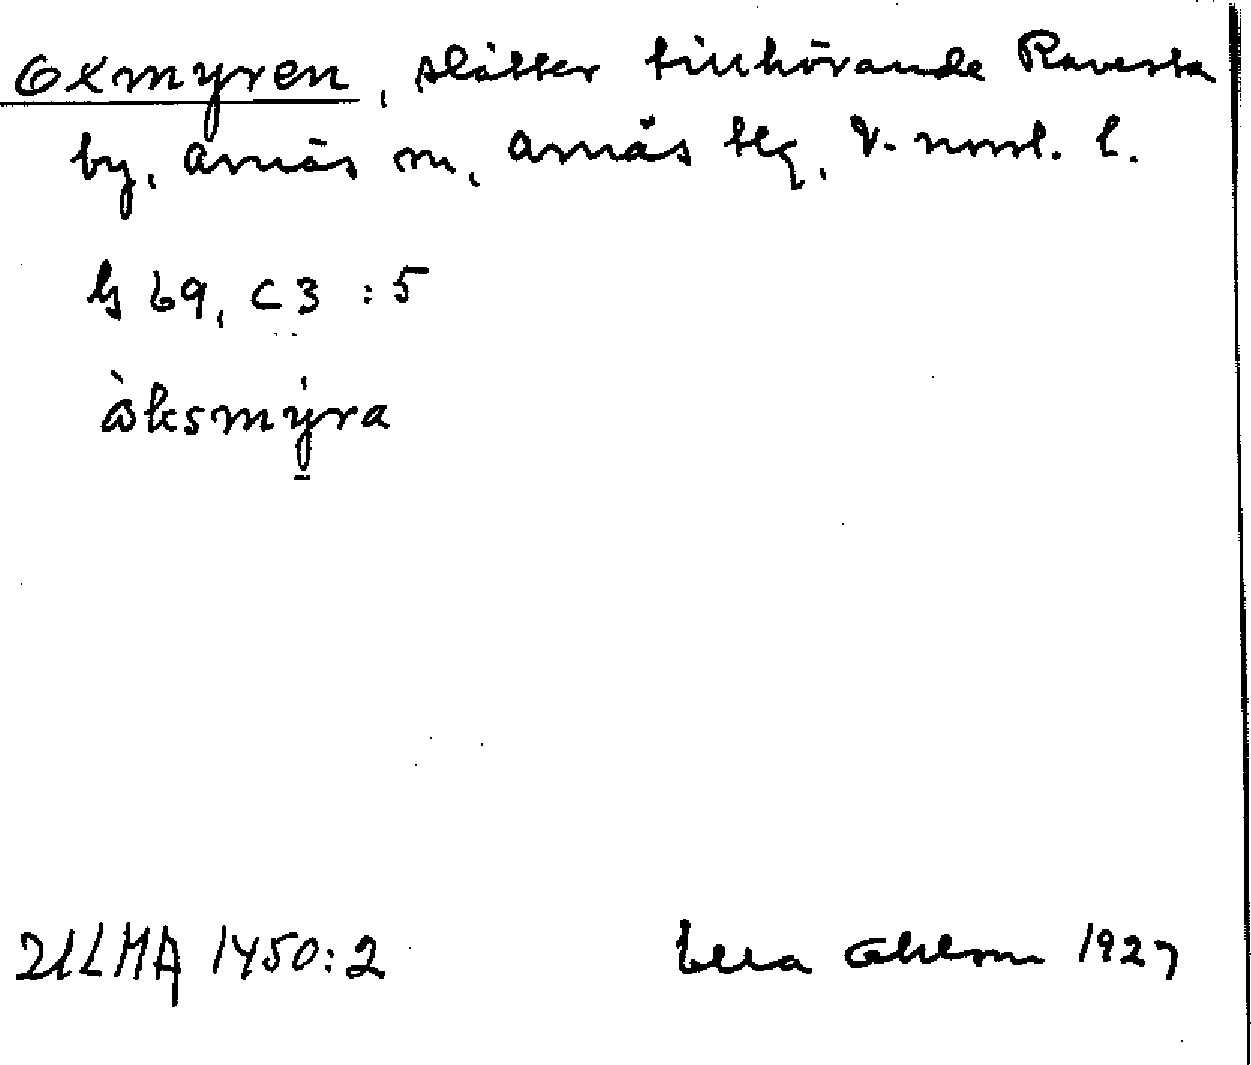 Oxmyren, slåtter tillhörande Ravesta
by, Arnäs sn, Arnäs tlg, V. norrl. l.
G 69, C3 :5
òksmýra
ULMA 1450:2
Ella Ohlson 1927